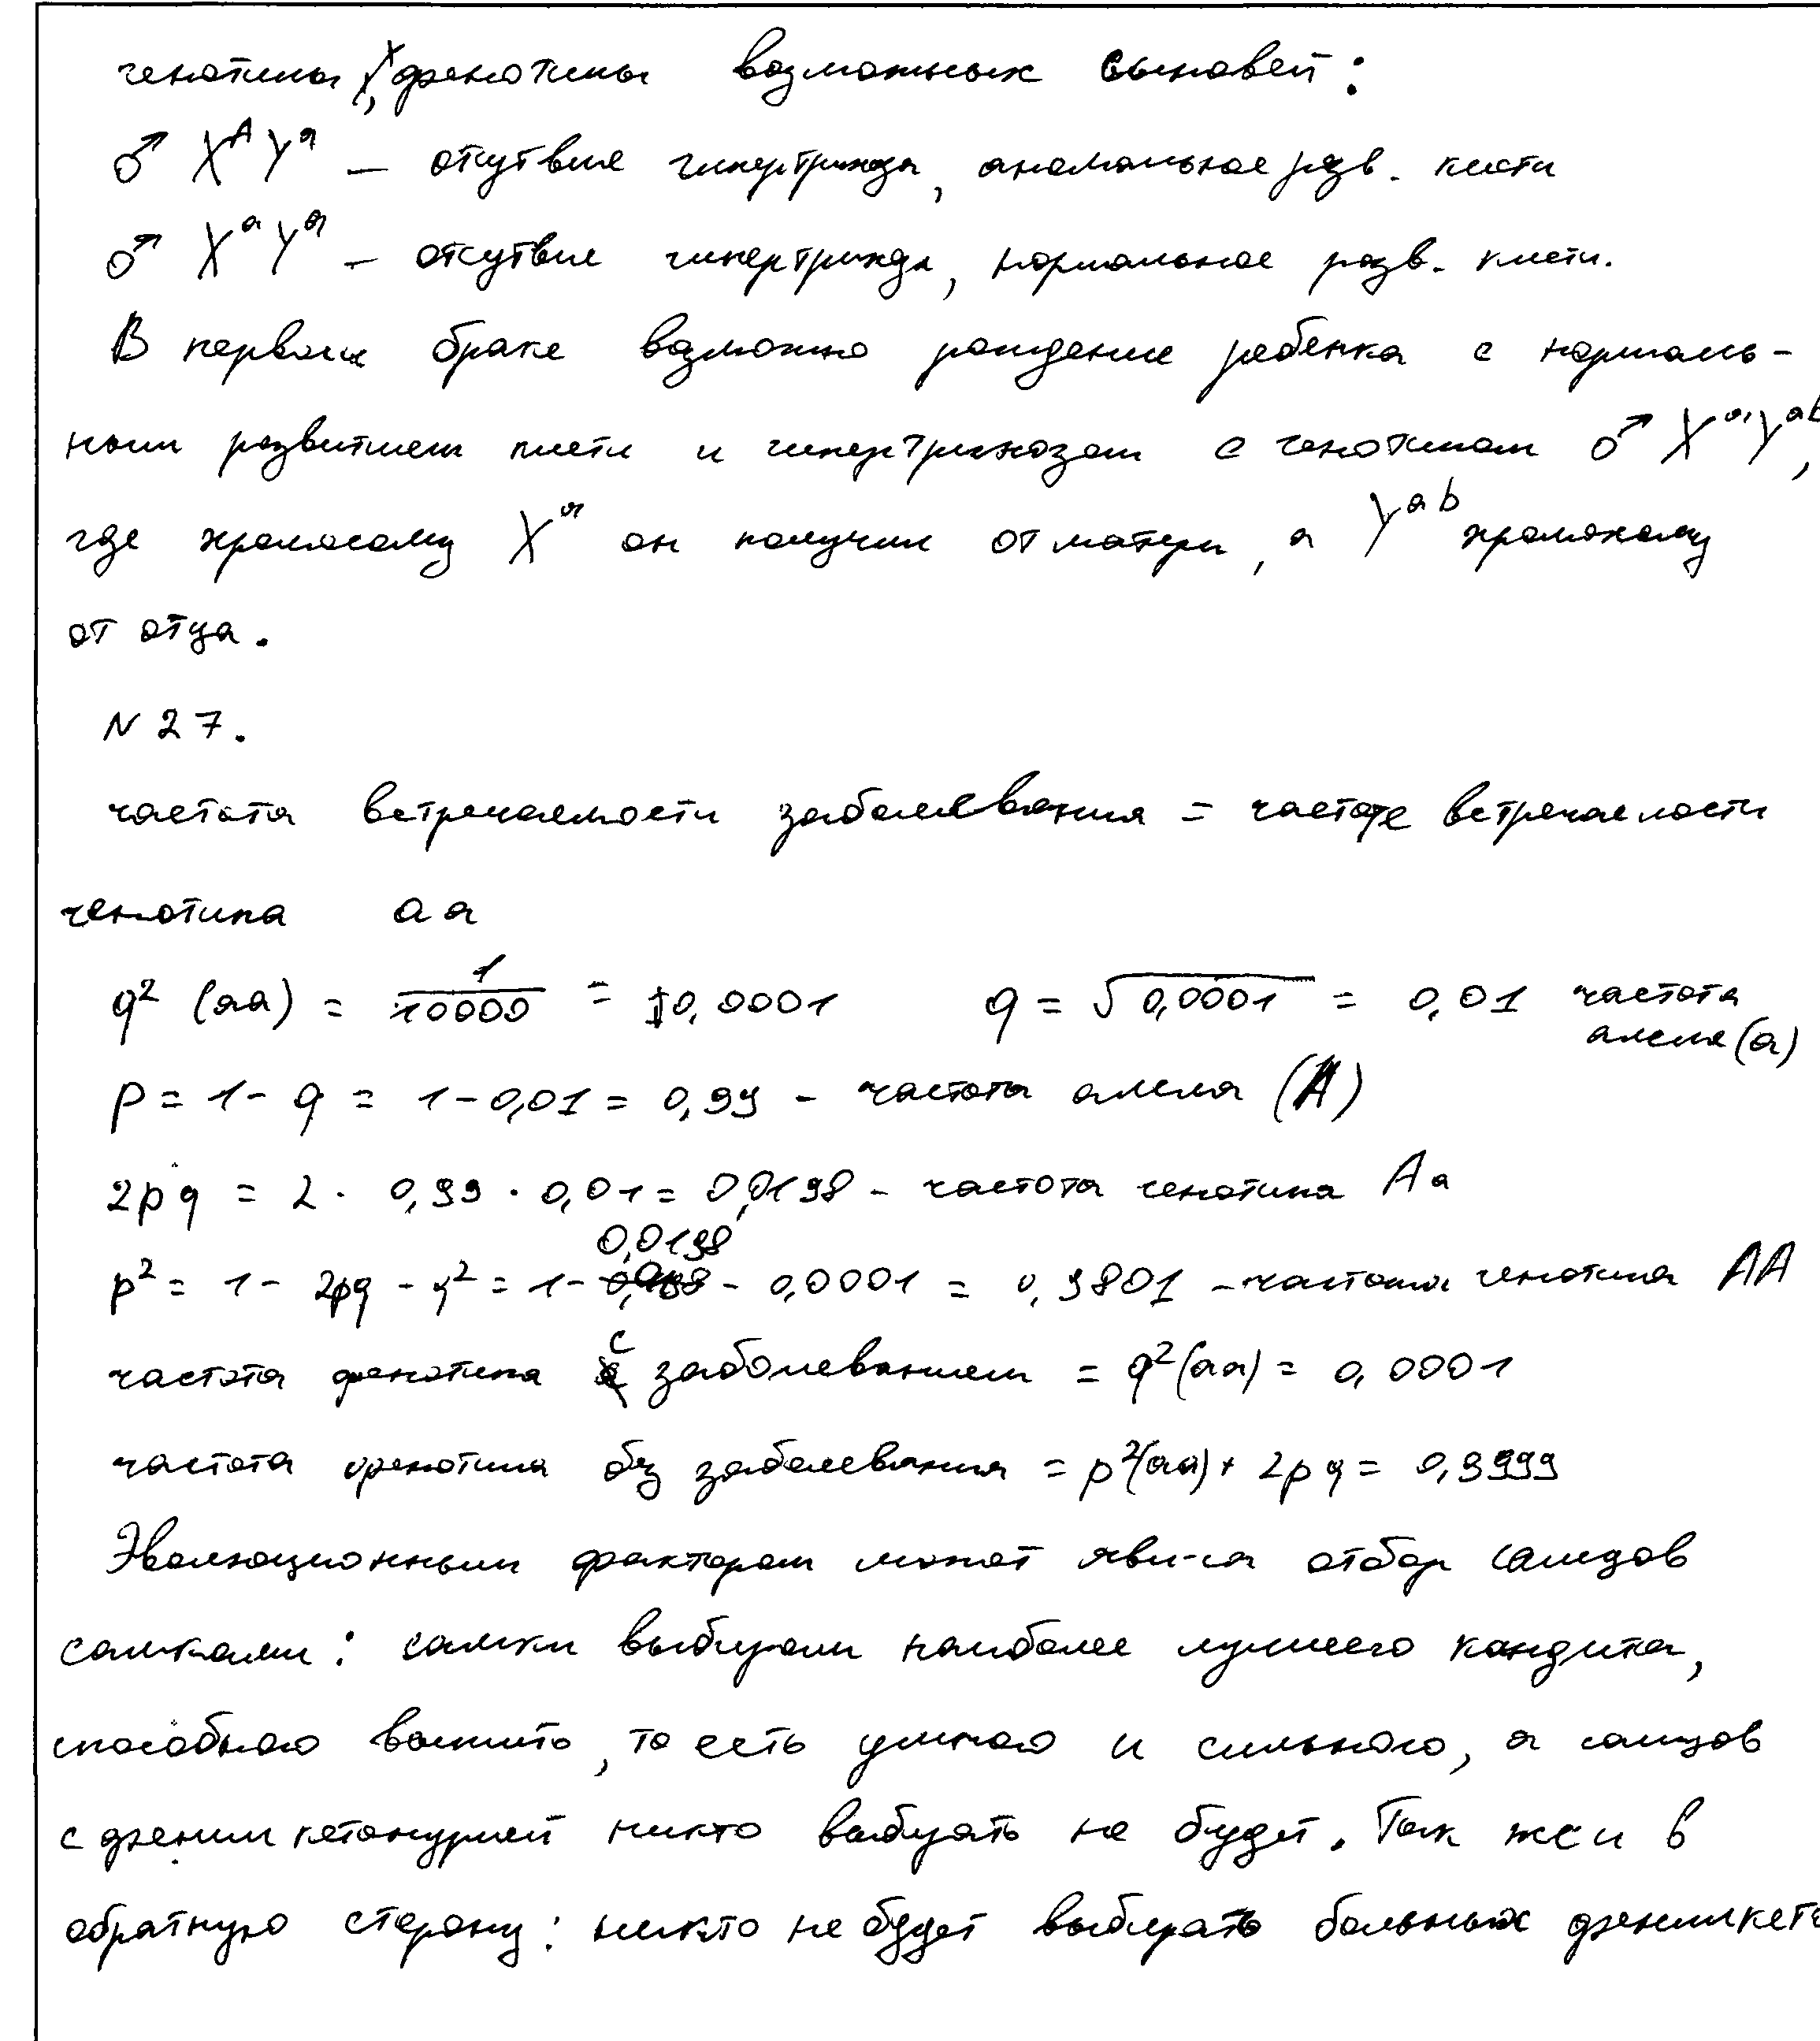 генотипы, фенотипы возможных сыновей:
♂ X^A Y^a — отсутвие гипертрихоза, аномальное разв. кисти
♂ X^a Y^a — отсутвие гипертрихоза, нормальное разв. кисти.
В первом браке возможно рождение ребенка с нормаль-
ным развитием кисти и гипертрихозом с генотипом ♂ X^a Y^ab,
где хромосому X^a он получил от матери, а Y^ab хромосому
от отца.
N 27.
частота встречаемости заболевания = частоте встречаемости
генотипа aa
q² (aa) = 1/10000 = 0,0001 q = √0,0001 = 0,01 частота
алеля (a)
p = 1 - q = 1 - 0,01 = 0,99 - частота алеля (A)
2pq = 2 · 0,99 · 0,01 = 0,0198 - частота генотипа Aa
p² = 1 - 2pq - q² = 1 - 0,0198 - 0,0001 = 0,9801 - частота генотипа AA
частота фенотипа с заболеванием = q²(aa) = 0,0001
частота фенотипа без заболевания = p²(aa) + 2pq = 0,9999
Эволюционным фактором может яви-ся отбор самцов
самками: самки выбирали наиболее лучшего кандита,
способного выжить, то есть умного и сильного, а самцов
с фенилкетонурией никто выбирать не будет. Так же и в
обратную сторону: никто не будет выбирать больных фенилкето